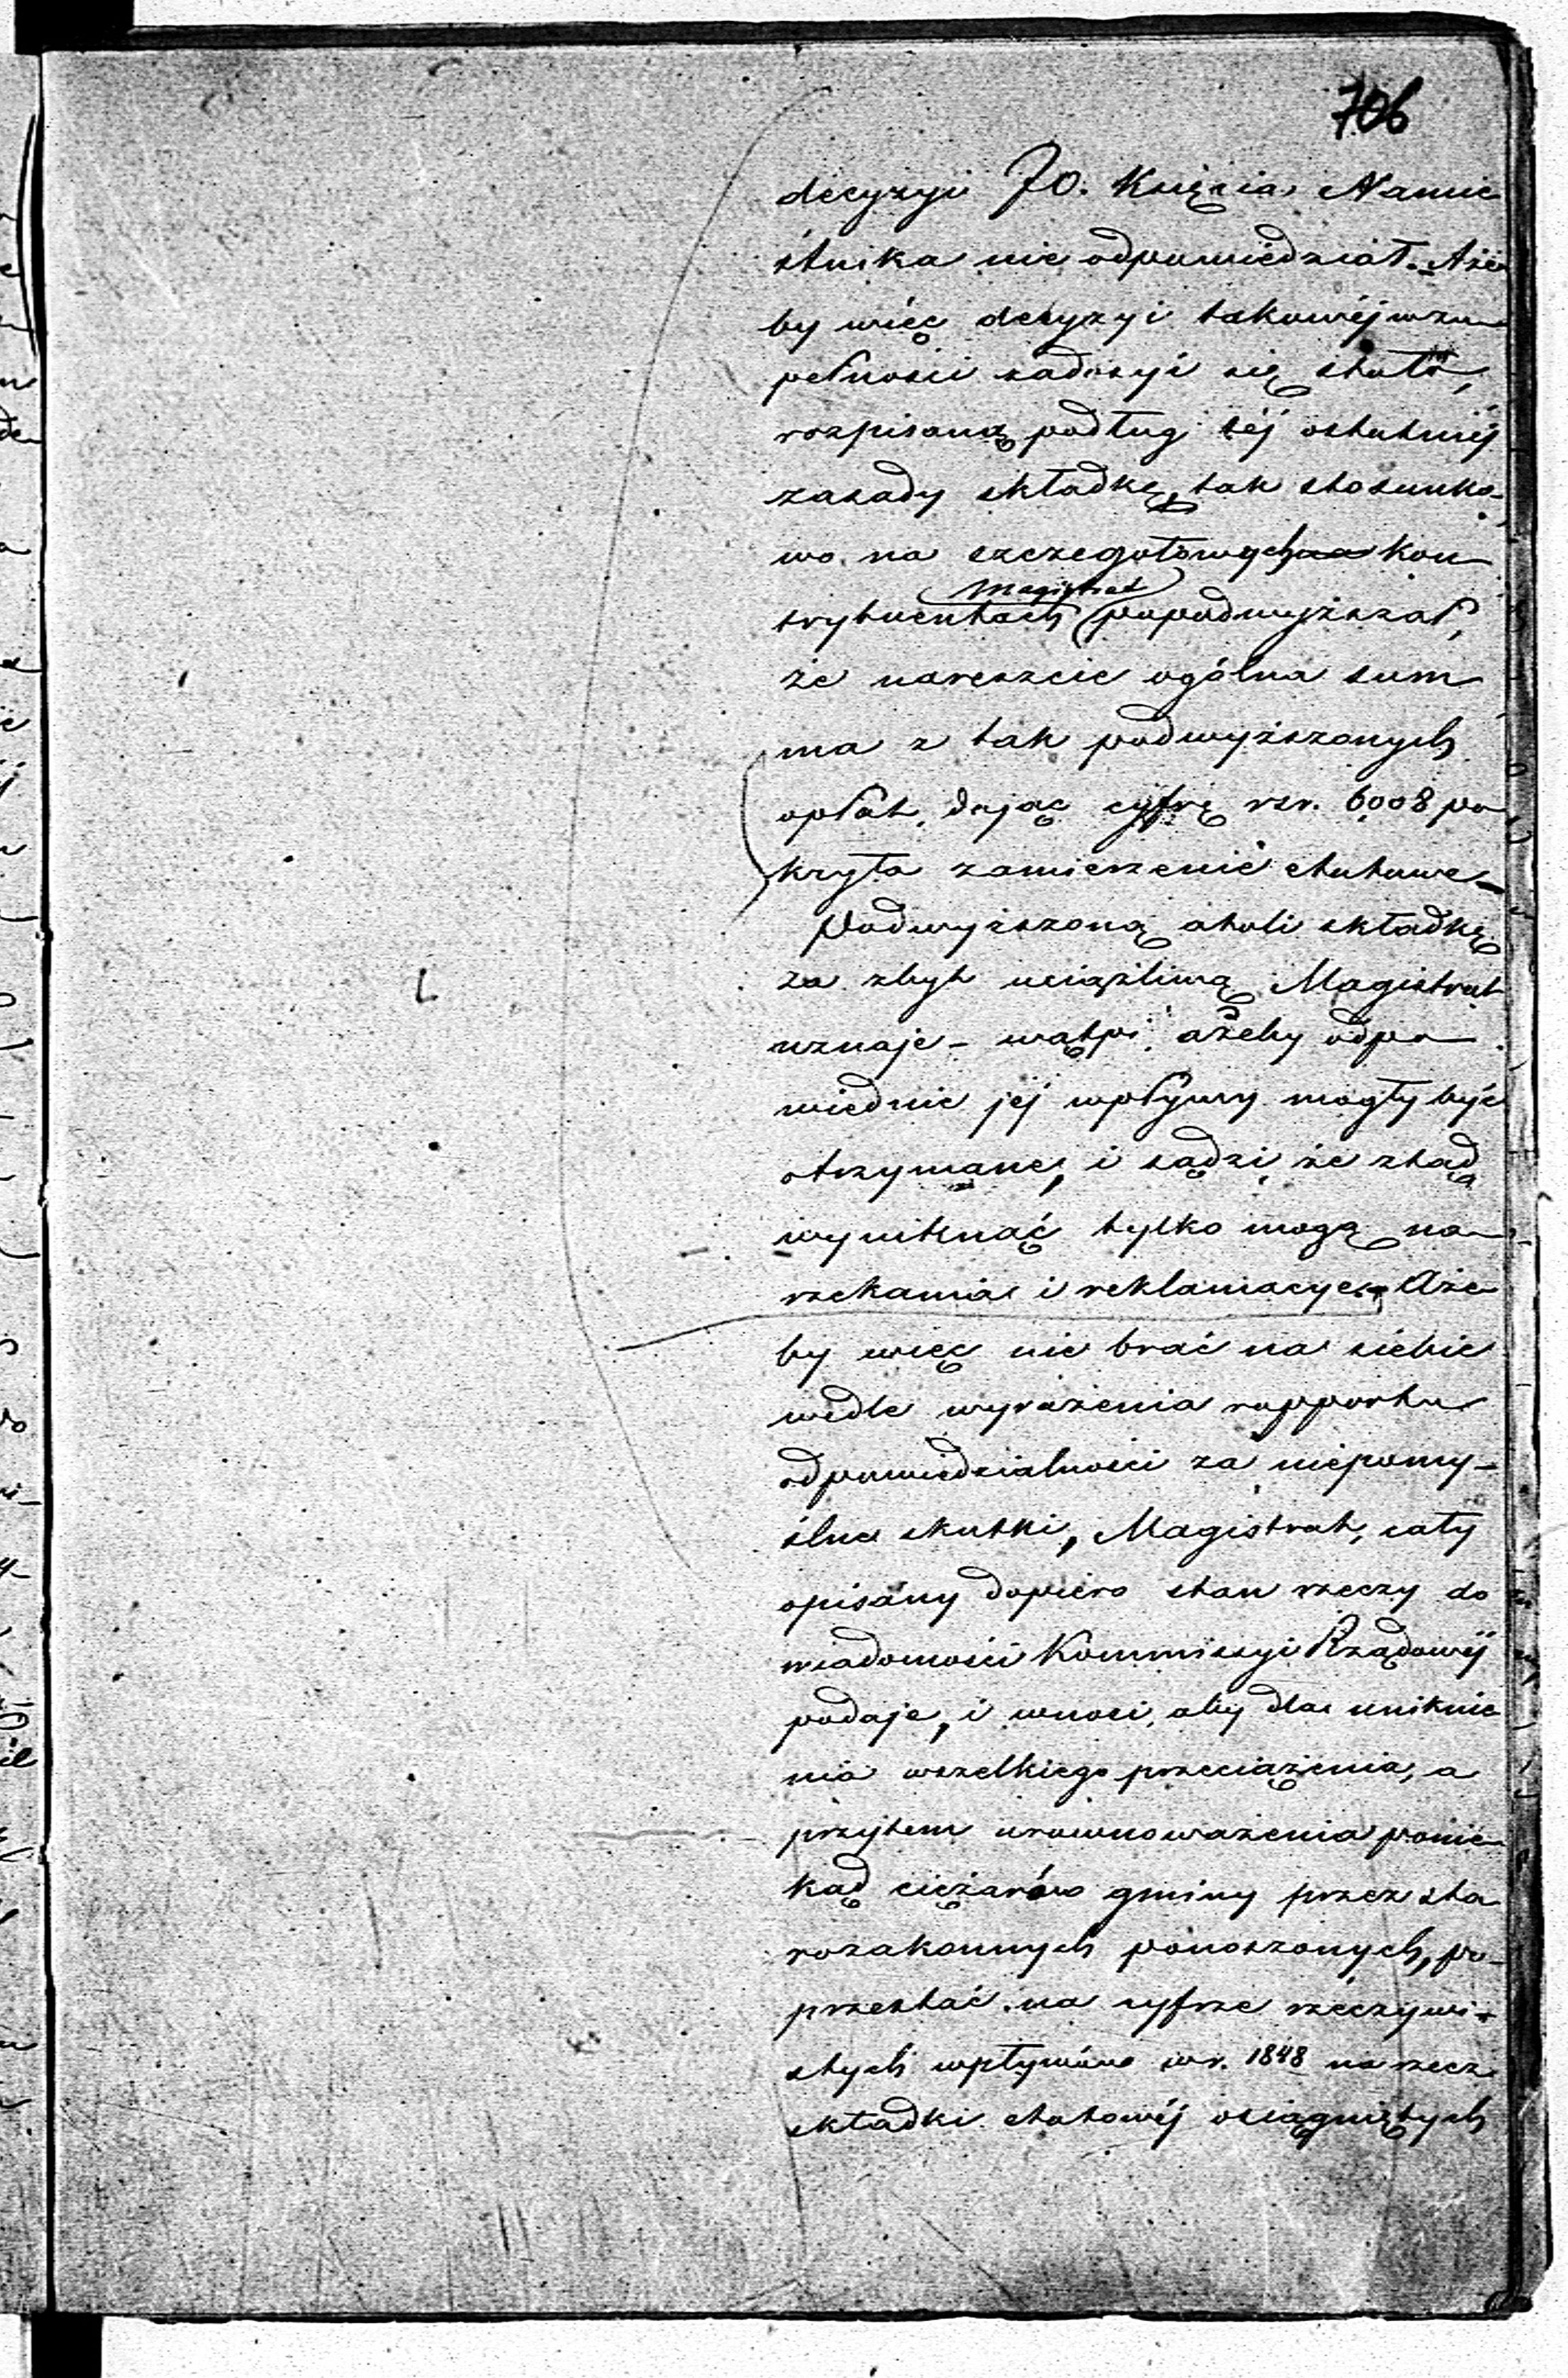 706
decyzyi JO. Księcia Namie
stnika nie odpowiedział. Aże
by więc decyzyi takowéj w zu
pełności zadosyć się stało,
rozpisaną podług téj ostatniéj
zasady składkę, tak stosunko-
wo na szczegółowych kon
Magistrat
trybuentach popodwyższał,
że nareszcie ogólna sum
ma z tak podwyższonych
opłat, dając cyfrę rsr. 6008 po
kryła zamierzenie etatowe –
Podwyższoną atoli składkę
za zbyt uciążliwą Magistrat
uznaje – wątpi, ażeby odpo
wiednie jéj wpływy mogły być
otrzymane, i sądzi, że ztąd
wyniknąć tylko mogą na
rzekania i reklamacye. – Aże
by więc nie brać na siebie
wedle wyrażenia rapportu
odpowiedzialności za niepomy-
ślne skutki, Magistrat, cały
opisany dopiero stan rzeczy do
wiadomości Kommissyi Rządowéj
podaje, i wnosi, aby dla uniknie
nia wszelkiego przeciążenia, a
przytem urównoważenia ponie
kąd ciężarów gminy przez sta
rozakonnych ponoszonych, po-
przestać na cyfrze rzeczywi-
stych wpływów w r. 1848 na rzecz
składki etatowéj osiągniętych